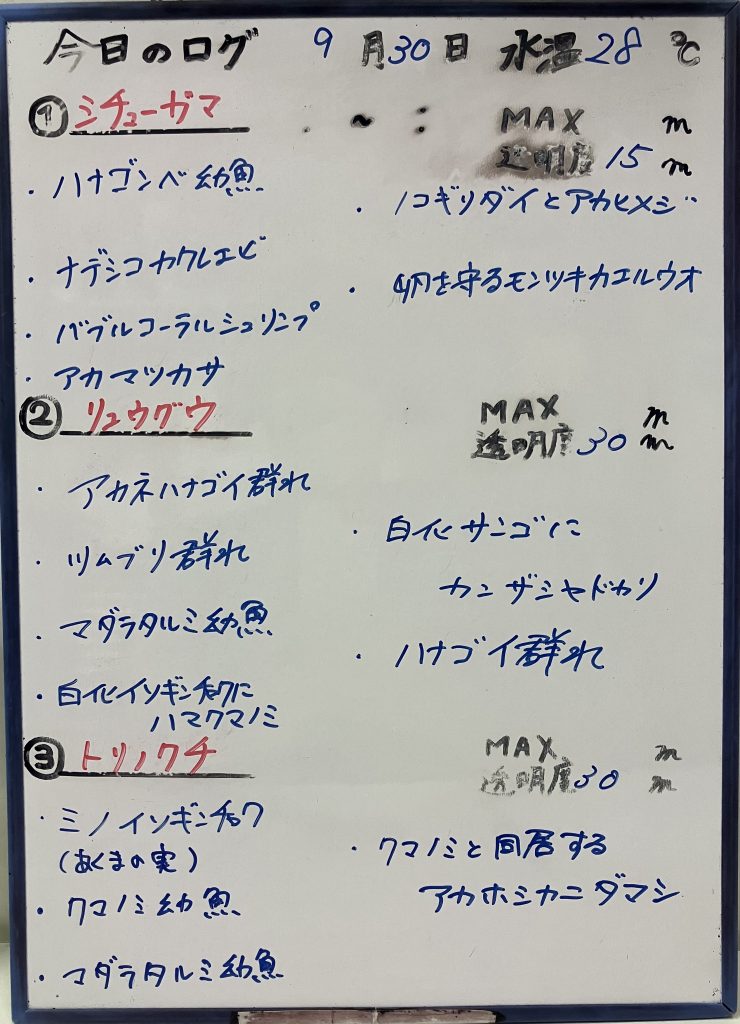 今日のログ 9月30日 水温28℃
①ミチューガマ ~ : MAX m
透明度15m
・ハナゴンベ幼魚
・ナデシコカクレエビ
・バブルコーラルシュリンプ
・アカマツカサ
・ノコギリダイとアカヒメジ
・卵を守るモンツキカエルウオ
②リュウグウ MAX m
透明度30m
・アカネハナゴイ群れ
・ツムブリ群れ
・マダラタルミ幼魚
・白化イソギンチャクに
ハマクマノミ
・白化サンゴに
カンザシヤドカリ
・ハナゴイ群れ
③トリノクチ MAX m
透明度30m
・ミノイソギンチャク
(あくまの実)
・クマノミ幼魚
・マダラタルミ幼魚
・クマノミと同居する
アカホシカニダマシ